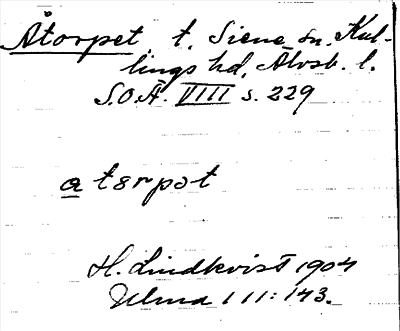 Åtorpet t. Siene sn. Kul-
lings hd, Älvsb. l.
S.O.Ä. VIII s. 229
a terpat
H. Lindkvist 1904
Ulma 111:143.